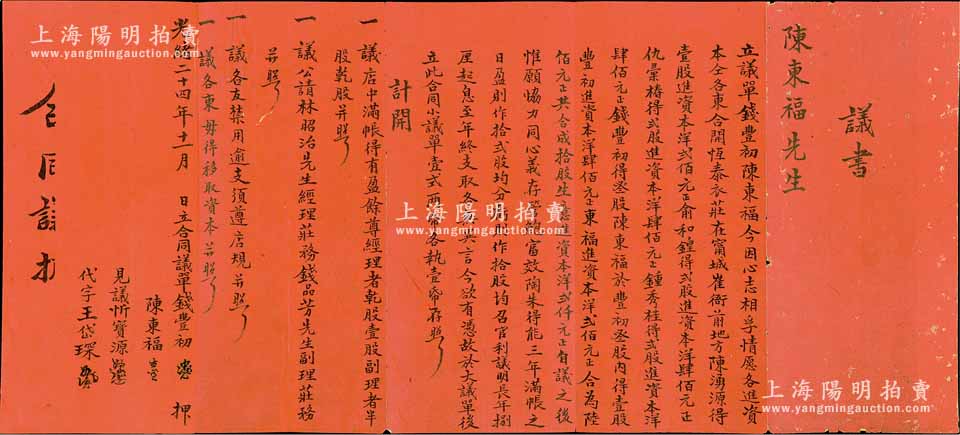 上海陽明拍賣
www.yangmingauction.com
上海陽明拍賣
www.yangmingauction.com
上海陽明拍賣
www.yangmingauction.com
議書
陳東福先生
立議單錢豐初陳東福今因心志相孚情愿各進資
本仝各東合開恆泰衣莊在甯城崔衙前地方陳湧源得
壹股進資本洋弍佰元正俞和鍾得弍股進資本洋肆佰元正
仇彙椿得弍股進資本洋肆佰元正鍾秀桂得弍股進資本洋
肆佰元正錢豐初得叄股陳東福於豐初叄股內得壹股
豐初進資本洋肆佰元正東福進資本洋弍佰元正合為陸
佰元正共合成拾股生意進資本洋弍仟元正自議之後
惟願協力同心義存管鮑富效陶朱得能三年滿帳之
日盈則作拾弍股均分虧則作拾股均召官利議明長年捌
厘起息至年終支取各無異言今欲有憑故於大議單後
立此合同小議單壹式兩帋各執壹帋存照
計開
一議店中滿帳得有盈餘尊經理者乾股壹股副理者半
股乾股并照
一議公請林昭治先生經理莊務錢品芳先生副理莊務
并照
一議各友禁用逾支須遵店規并照
一議各東毋得移取資本并照
光緒二十四年十一月 日立合同議單錢豐初 押
陳東福
見議忻寶源
代字王岱琛
上海陽明拍賣
www.yangmingauction.com
上海陽明拍賣
www.yangmingauction.com